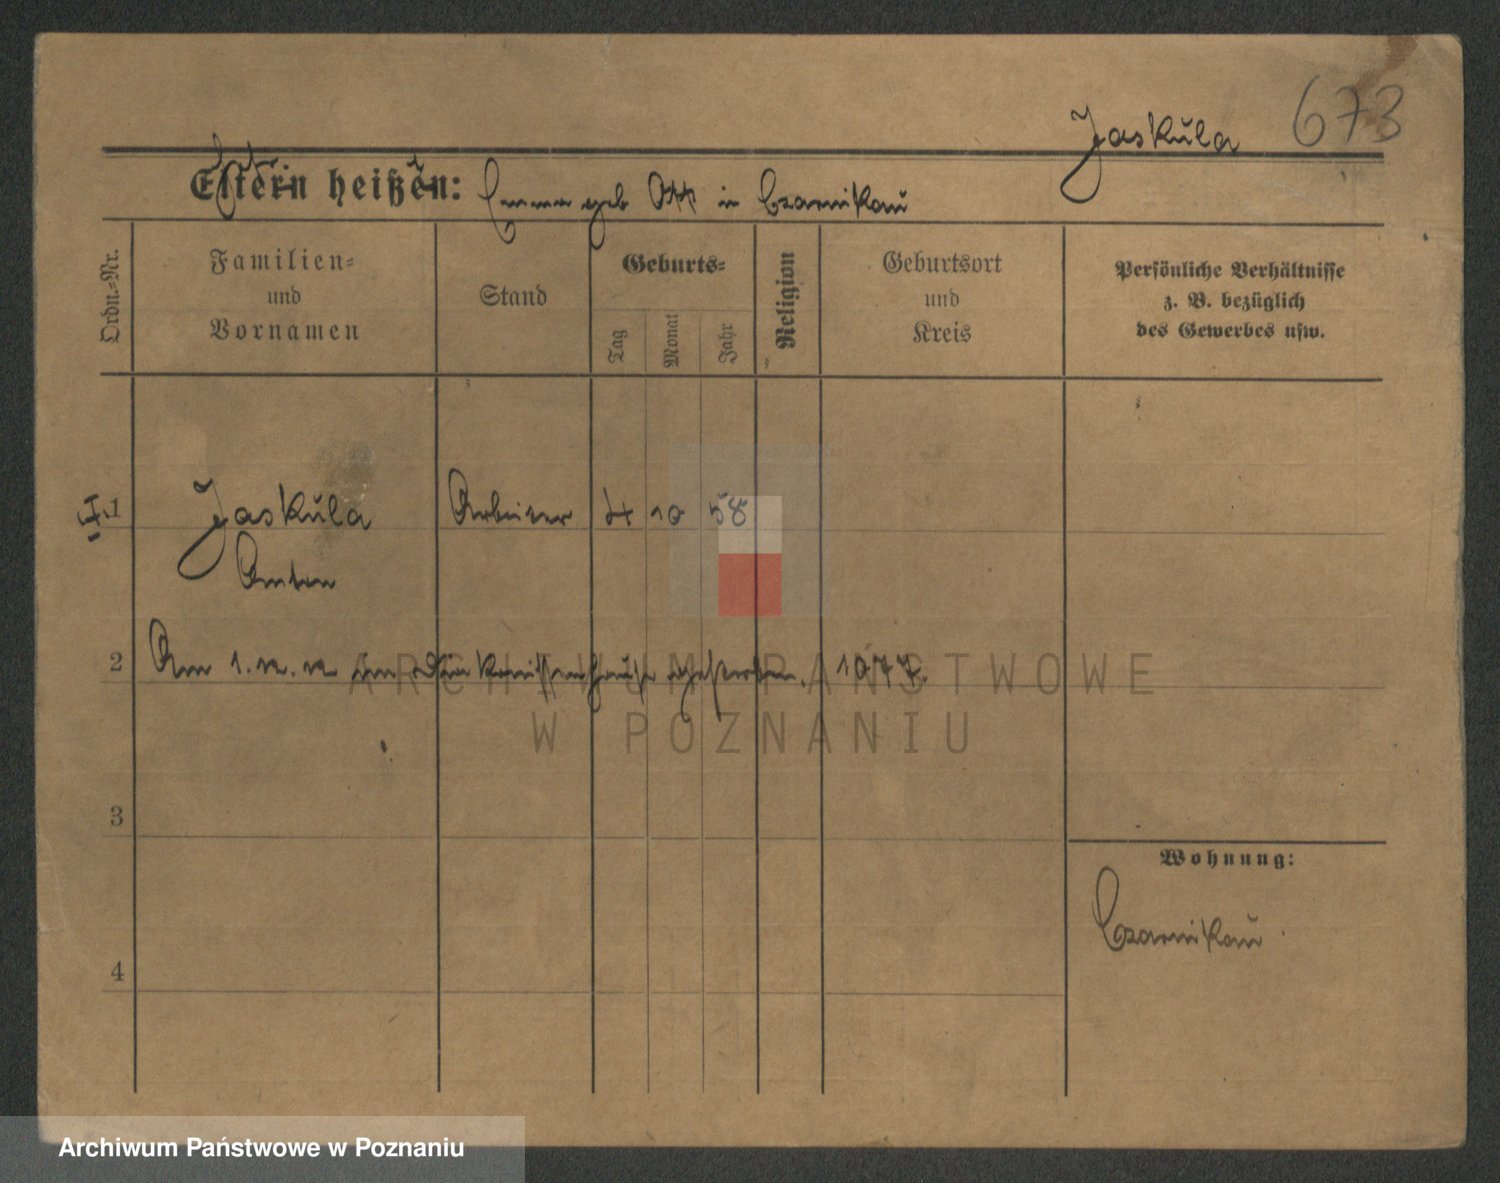 673
Jaskula
Eltern heißen: Emma geb Ott in Czarnikau
Ordn.-Nr.
Familien-
und
Vornamen
Stand
Geburts-
Tag
Monat
Jahr
Religion
Geburtsort
und
Kreis
Persönliche Verhältnisse
z. B. bezüglich
des Gewerbes usw.
1 Jaskula Arbeiter 4 10 58
Anton
2 Am 1. im Diakonissenhause gestorben.
ARCHIWUM PAŃSTWOWE
W POZNANIU
3
Wohnung:
Czarnikau
4
Archiwum Państwowe w Poznaniu